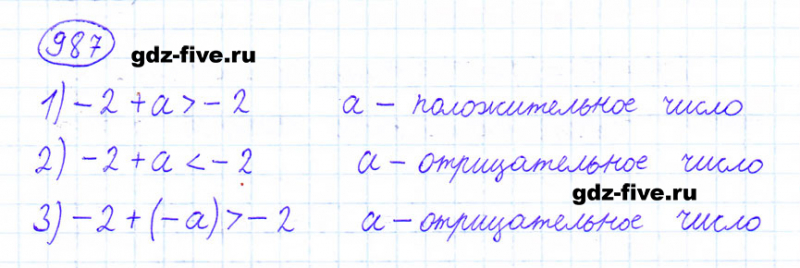 987
gdz-five.ru
1) - 2 + a > - 2 a - положительное число
2) - 2 + a < - 2 a - отрицательное число
gdz-five.ru
3) - 2 + (-a) > - 2 a - отрицательное число